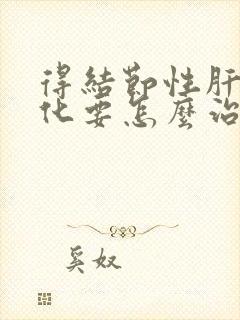 得結節性肝
化要怎麼治
奚奴